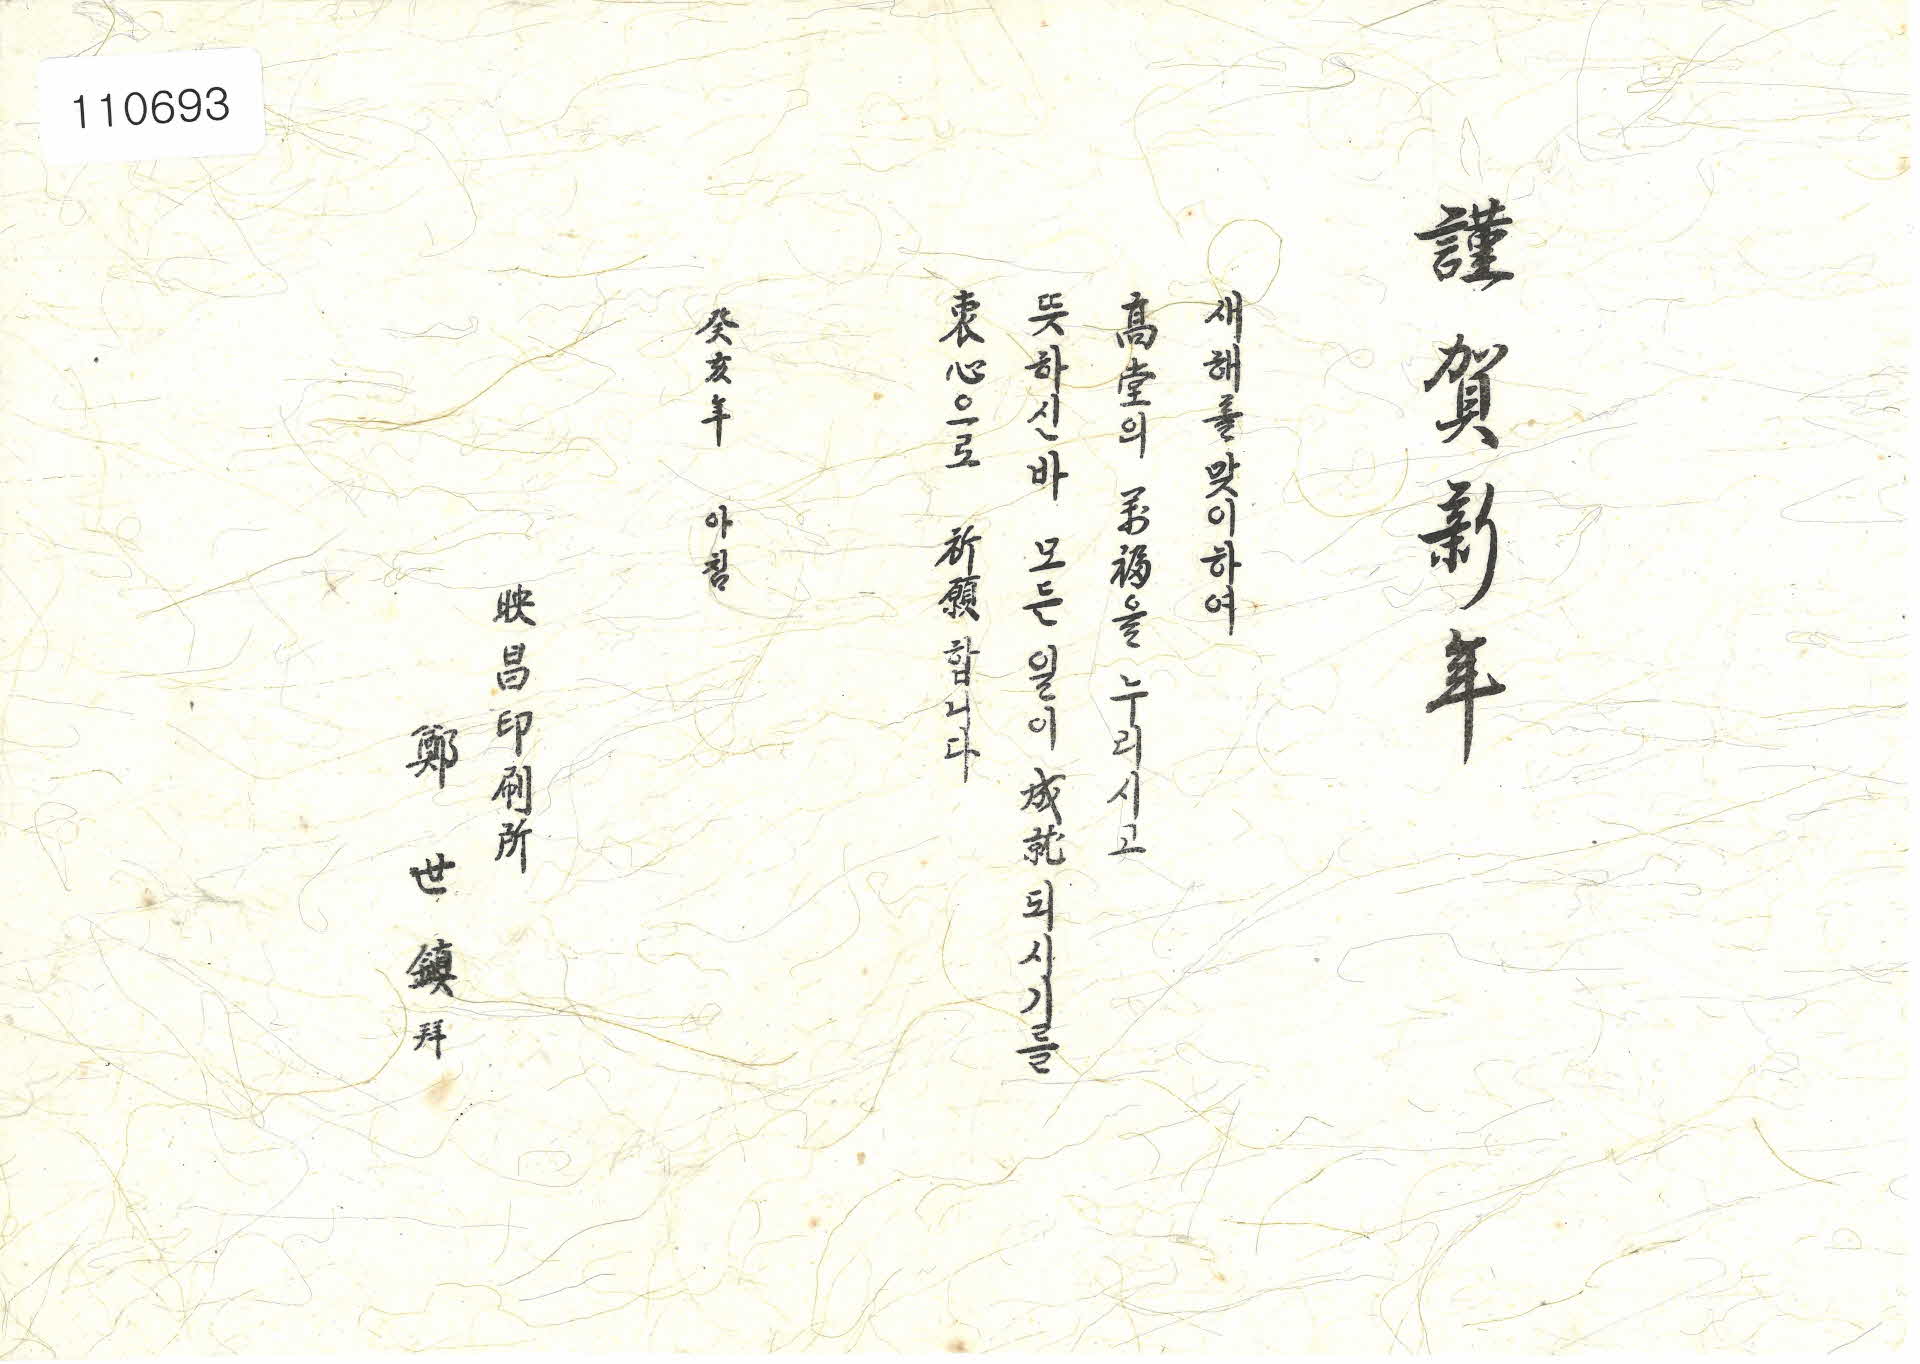 110693
謹賀新年
새해를 맞이하여
高堂의 萬福을 누리시고
뜻하신 바 모든 일이 成就되시기를
衷心으로 祈願합니다
癸亥年 아침
映昌印刷所
鄭世鎭 拜